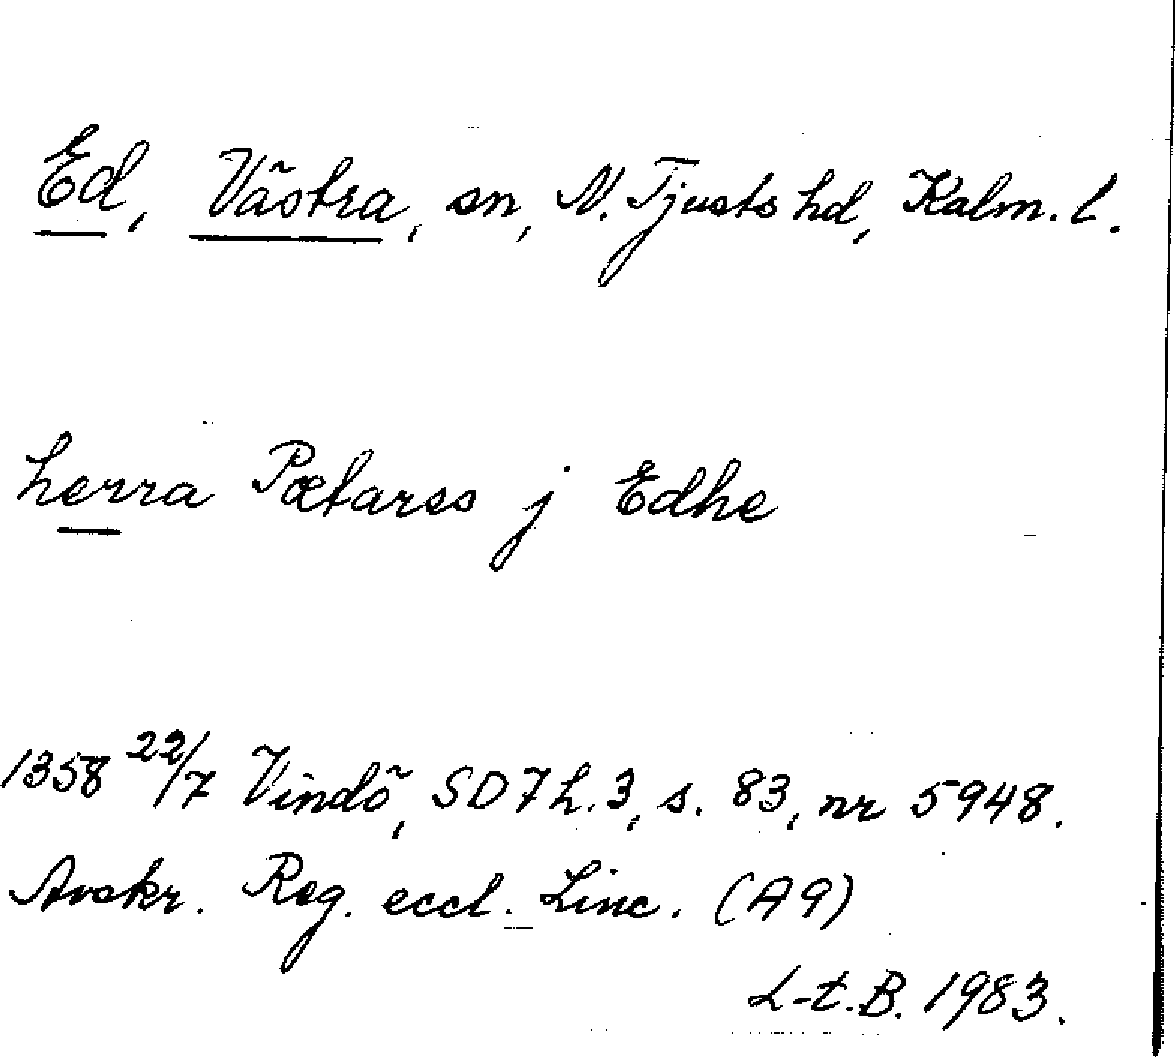 Ed, Västra, sn, N. Tjusts hd, Kalm. l.
herra Pætarss j Edhe
1358 22/7 Vindö, SD 7 h. 3, s. 83, nr 5948.
Avskr. Reg. eccl. Linc. (A9)
L-t.B. 1983.